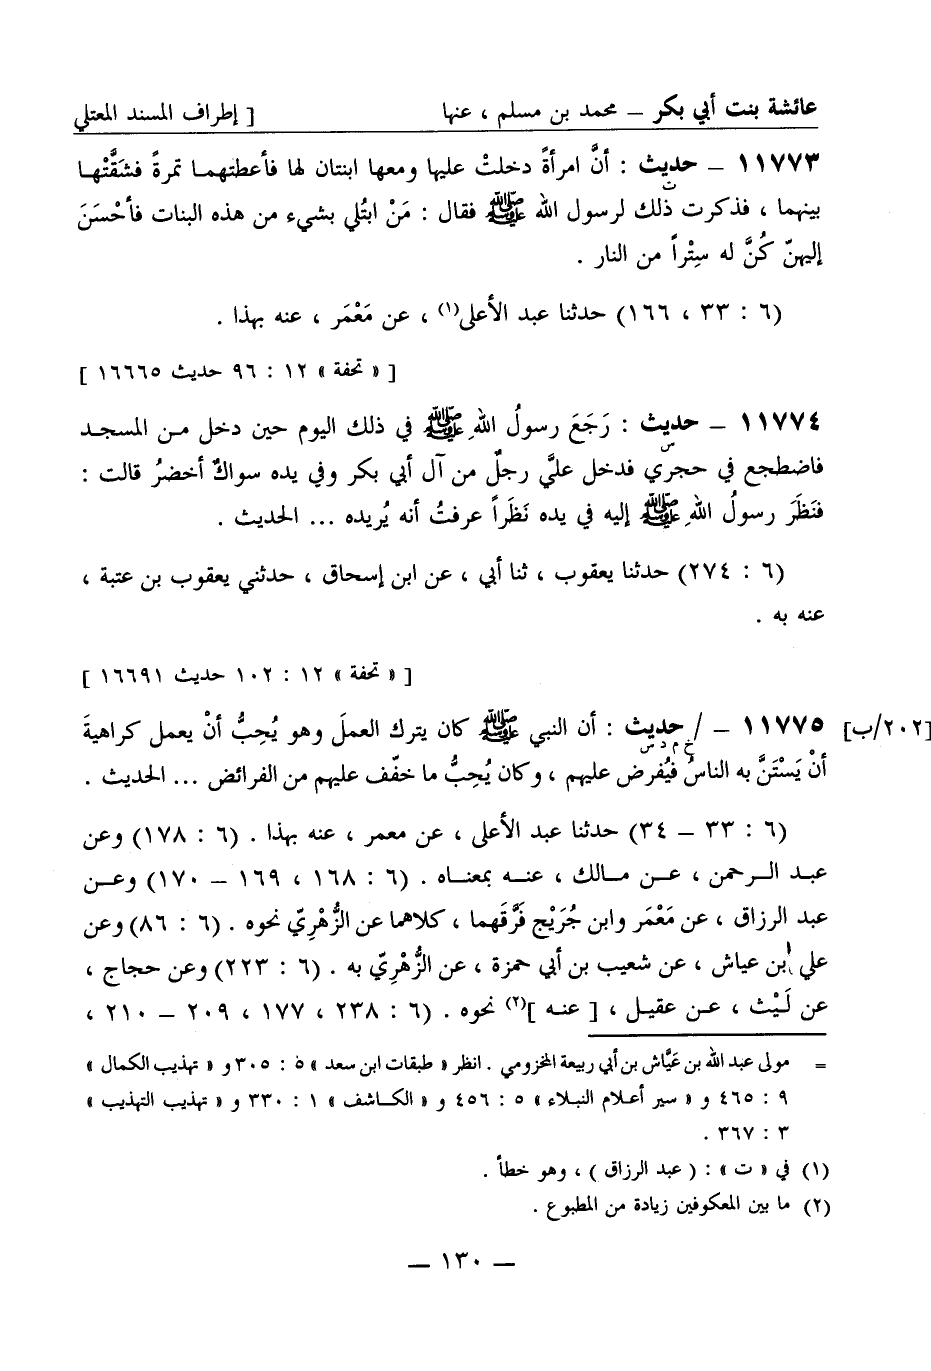 عائشة بنت أبي بكر – محمد بن مسلم ، عنها [ إطراف المسند المعتلي
١١٧٧٣ – حديث : أنَّ امرأةً دخلتْ عليها ومعها ابنتان لها فأعطتهما تمرةً فشقَّتْها
ت
بينهما ، فذكرت ذلك لرسول الله ﷺ فقال : مَنْ ابتُلي بشيء من هذه البنات فأحْسَنَ
إليهنّ كُنَّ له سِتْراً من النار .
(٦ : ٣٣ ، ١٦٦) حدثنا عبد الأعلى(١) ، عن مَعْمَر ، عنه بهذا .
[ « تحفة » ١٢ : ٩٦ حديث ١٦٦٦٥ ]
١١٧٧٤ – حديث : رَجَعَ رسولُ اللهِ ﷺ في ذلك اليوم حين دخل من المسجد
س
فاضطجع في حجري فدخل عليَّ رجلٌ من آل أبي بكر وفي يده سواكٌ أخضرُ قالت :
فنَظَرَ رسولُ اللهِ ﷺ إليه في يده نَظَراً عرفتُ أنه يُريده ... الحديث .
(٦ : ٢٧٤) حدثنا يعقوب ، ثنا أبي ، عن ابن إسحاق ، حدثني يعقوب بن عتبة ،
عنه به .
[ « تحفة » ١٢ : ١٠٢ حديث ١٦٦٩١ ]
[٢٠٢/ب] ١١٧٧٥ – / حديث : أن النبي ﷺ كان يترك العملَ وهو يُحِبُّ أنْ يعمل كراهيةَ
خ م د س
أنْ يَسْتَنَّ به الناسُ فيُفرض عليهم ، وكان يُحِبُّ ما خفّف عليهم من الفرائض ... الحديث .
(٦ : ٣٣ – ٣٤) حدثنا عبد الأعلى ، عن معمر ، عنه بهذا . (٦ : ١٧٨) وعن
عبد الرحمن ، عن مالك ، عنه بمعناه . (٦ : ١٦٨ ، ١٦٩ – ١٧٠) وعن
عبد الرزاق ، عن مَعْمَر وابن جُرَيْج فرَّقَهما ، كلاهما عن الزُّهْرِيّ نحوه . (٦ : ٨٦) وعن
علي ابن عياش ، عن شعيب بن أبي حمزة ، عن الزُّهْرِيّ به . (٦ : ٢٢٣) وعن حجاج ،
عن لَيْث ، عن عقيل ، [ عنه ](٢) نحوه . (٦ : ٢٣٨ ، ١٧٧ ، ٢٠٩ – ٢١٠ ،
= مولى عبد الله بن عيَّاش بن أبي ربيعة المخزومي . انظر « طبقات ابن سعد » ٥ : ٣٠٥ و « تهذيب الكمال »
٩ : ٤٦٥ و « سير أعلام النبلاء » ٥ : ٤٥٦ و « الكاشف » ١ : ٣٣٠ و « تهذيب التهذيب »
٣ : ٣٦٧ .
(١) في « ت » : ( عبد الرزاق ) ، وهو خطأ .
(٢) ما بين المعكوفين زيادة من المطبوع .
– ١٣٠ –